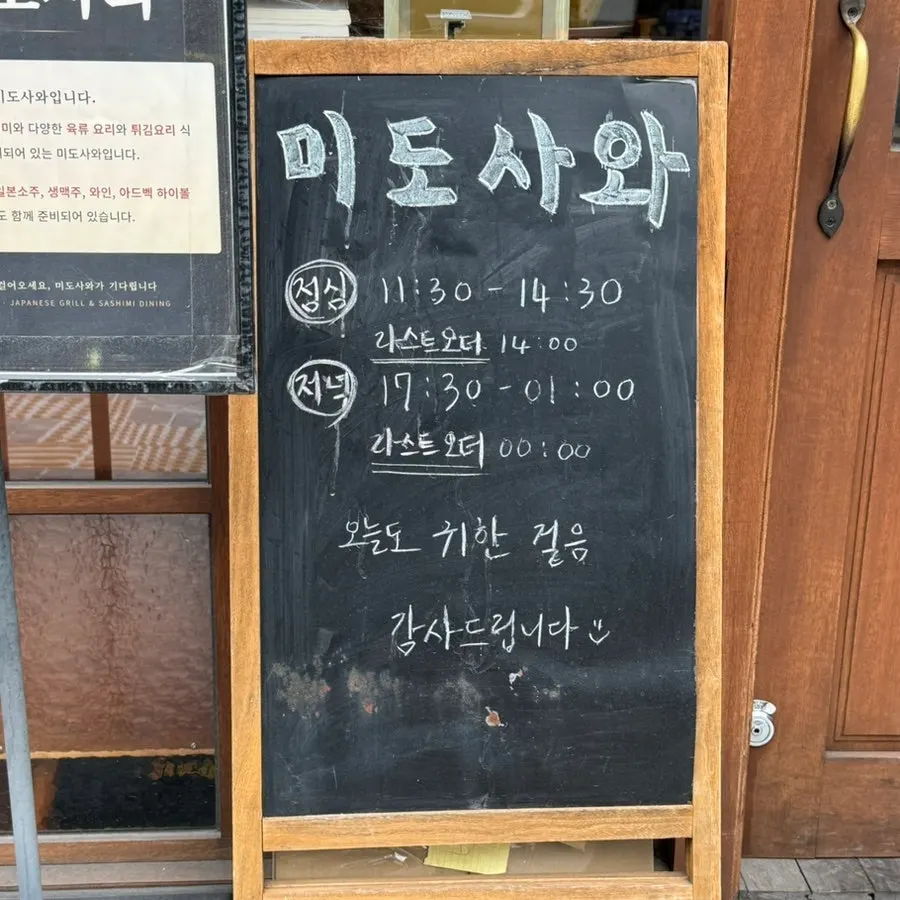 미도사와입니다.
육류 요리와 튀김요리 식
되어 있는 미도사와입니다.
일본소주, 생맥주, 와인, 아드벡 하이볼
도 함께 준비되어 있습니다.
걸어오세요, 미도사와가 기다립니다
JAPANESE GRILL & SASHIMI DINING
미도사와
점심 11:30 - 14:30
라스트오더 14:00
저녁 17:30 - 01:00
라스트오더 00:00
오늘도 귀한 걸음
감사드립니다